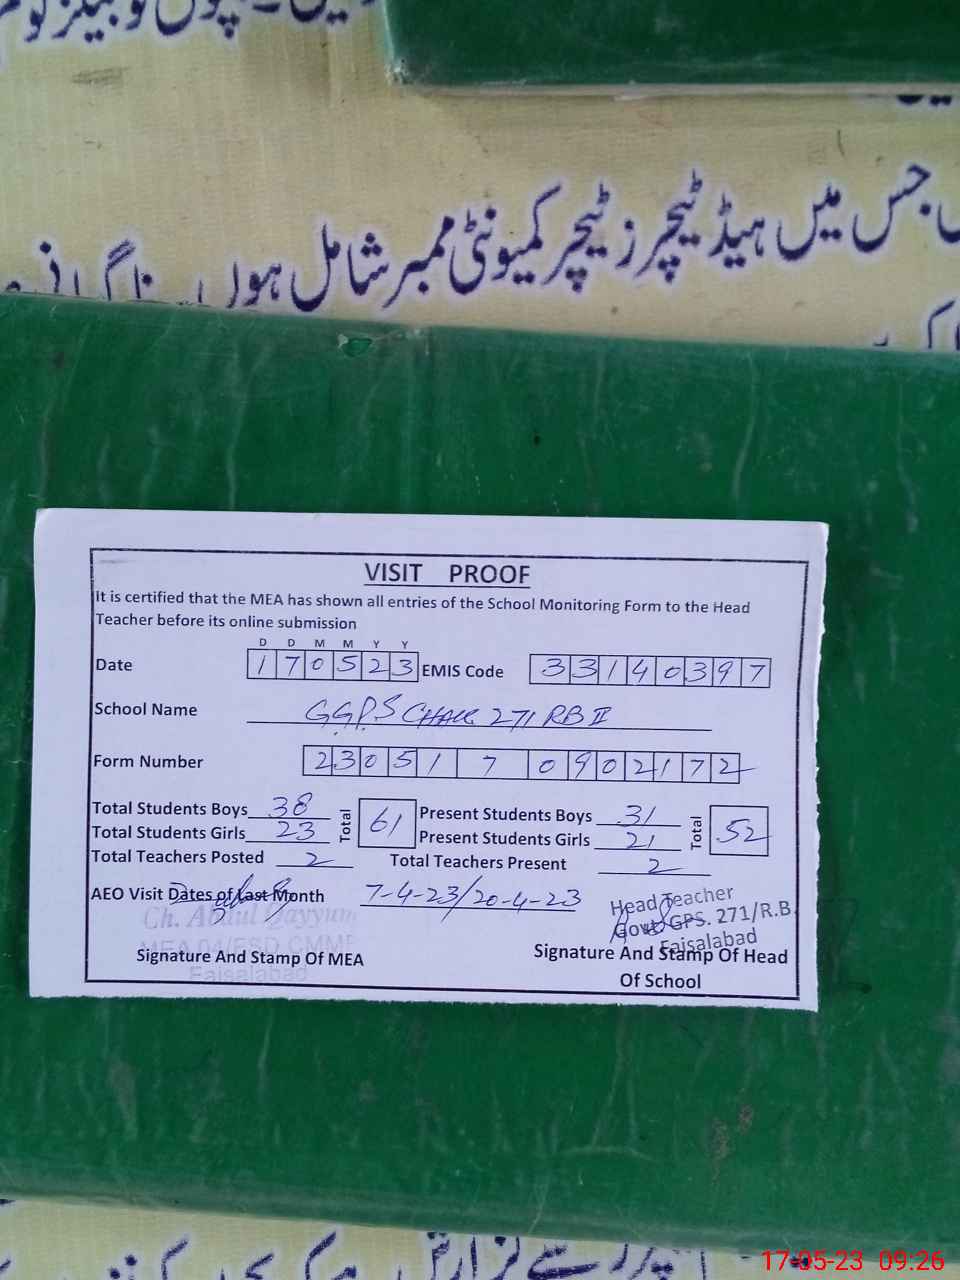 جس میں ہیڈ ٹیچرز ٹیچر کمیونٹی ممبر شامل ہوں
VISIT PROOF
It is certified that the MEA has shown all entries of the School Monitoring Form to the Head
Teacher before its online submission
D D M M Y Y
Date 1 7 0 5 2 3 EMIS Code 3 3 1 4 0 3 9 7
School Name GGPS CHAK 271 RB II
Form Number 2 3 0 5 1 7 0 9 0 2 1 7 2
Total Students Boys 38 Total 61 Present Students Boys 31 Total 52
Total Students Girls 23 Present Students Girls 21
Total Teachers Posted 2 Total Teachers Present 2
AEO Visit Dates of Last Month 7-4-23/20-4-23
Head Teacher
Govt GPS. 271/R.B
Faisalabad
Ch. Abdul Qayyum
MEA 04/FSD CMMF
Faisalabad
Signature And Stamp Of MEA
Signature And Stamp Of Head
Of School
17-05-23 09:26